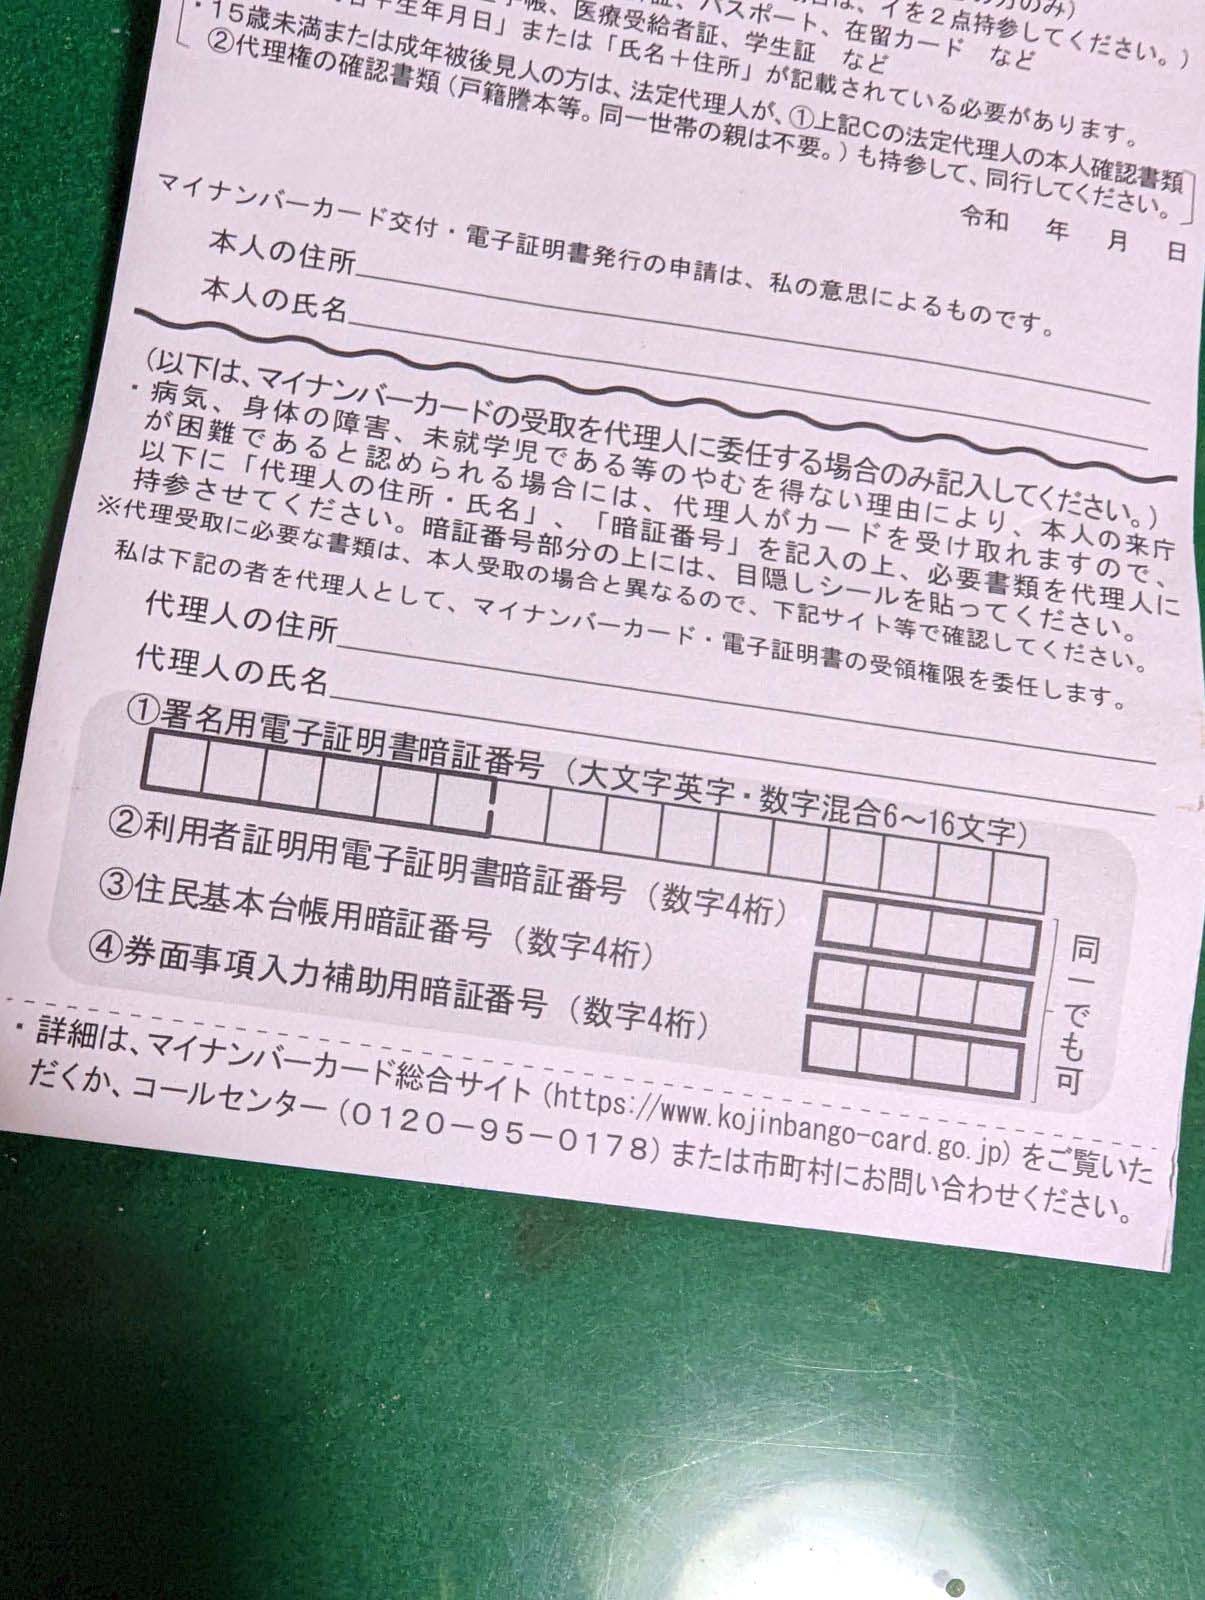 は、イを２点持参してください。)
帳、医療受給者証、学生証　など
パスポート、在留カード　など
生年月日」または「氏名＋住所」が記載されている必要があります。
・15歳未満または成年被後見人の方は、法定代理人が、①上記Cの法定代理人の本人確認書類
②代理権の確認書類（戸籍謄本等。同一世帯の親は不要。）も持参して、同行してください。
令和　年　月　日
マイナンバーカード交付・電子証明書発行の申請は、私の意思によるものです。
本人の住所
本人の氏名
（以下は、マイナンバーカードの受取を代理人に委任する場合のみ記入してください。）
・病気、身体の障害、未就学児である等のやむを得ない理由により、本人の来庁
が困難であると認められる場合には、代理人がカードを受け取れますので、
以下に「代理人の住所・氏名」、「暗証番号」を記入の上、必要書類を代理人に
持参させてください。暗証番号部分の上には、目隠しシールを貼ってください。
※代理受取に必要な書類は、本人受取の場合と異なるので、下記サイト等で確認してください。
私は下記の者を代理人として、マイナンバーカード・電子証明書の受領権限を委任します。
代理人の住所
代理人の氏名
①署名用電子証明書暗証番号（大文字英字・数字混合6～16文字）
②利用者証明用電子証明書暗証番号（数字4桁）
③住民基本台帳用暗証番号（数字4桁）
④券面事項入力補助用暗証番号（数字4桁）
同一でも可
・詳細は、マイナンバーカード総合サイト（https://www.kojinbango-card.go.jp）をご覧いた
だくか、コールセンター（０１２０－９５－０１７８）または市町村にお問い合わせください。